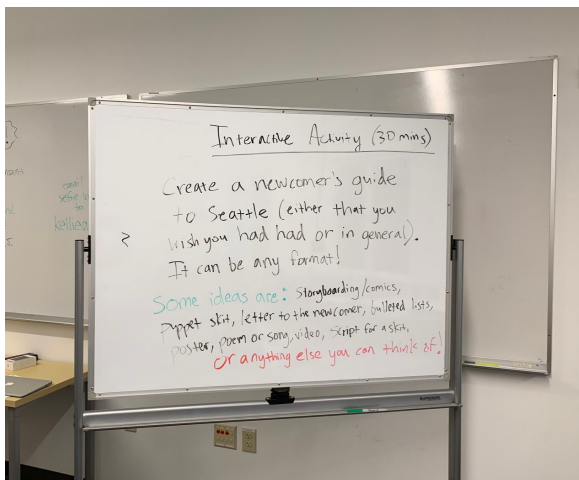 Interactive Activity (30 mins)
Create a newcomer's guide
to Seattle (either that you
wish you had had or in general).
It can be any format!
Some ideas are: Storyboarding/comics,
puppet skit, letter to the newcomer, bulleted lists,
poster, poem or song, video, script for a skit,
or anything else you can think of!
email
to